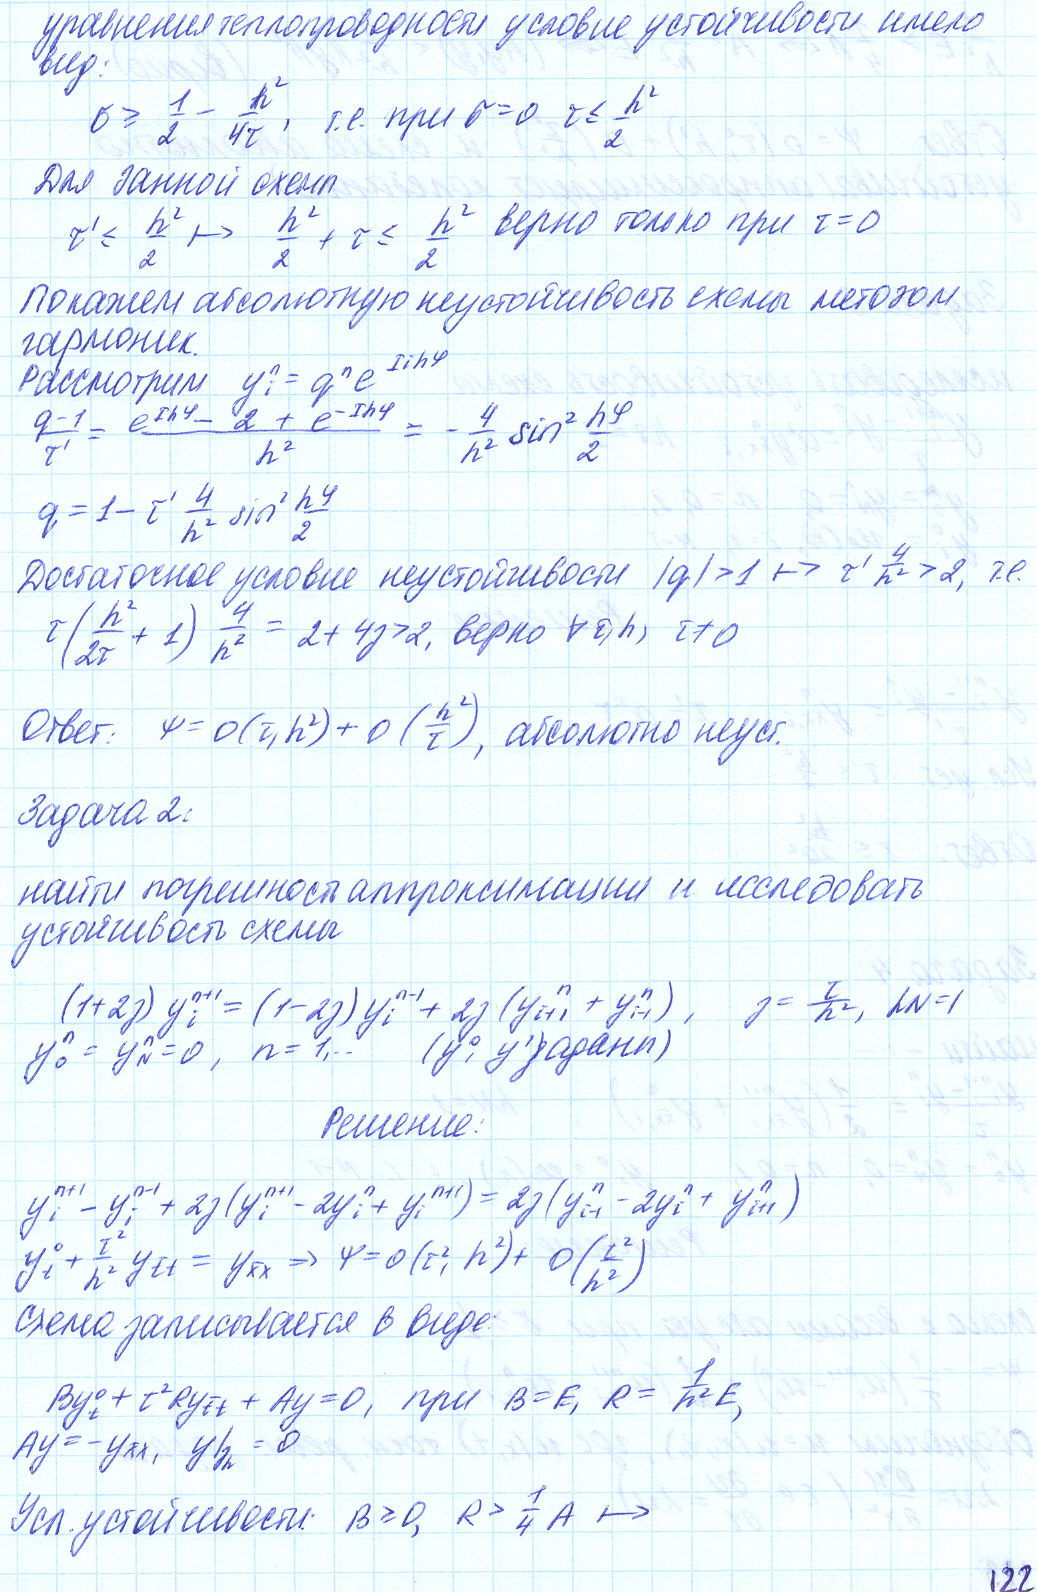 уравнения теплопроводности условие устойчивости имело
вид:
σ ≥ 1/2 - h²/4τ, т.е. при σ=0 τ ≤ h²/2
Для данной схемы
τ' ≤ h²/2 ↦ h²/2 + τ ≤ h²/2 верно только при τ=0
Покажем абсолютную неустойчивость схемы методом
гармоник.
Рассмотрим y_i^n = q^n e^{Iihφ}
(q-1)/τ' = (e^{Ihφ} - 2 + e^{-Ihφ})/h² = -4/h² sin² hφ/2
q = 1 - τ' 4/h² sin² hφ/2
Достаточное условие неустойчивости |q|>1 ↦ τ' 4/h² > 2, т.е.
τ(h²/2τ + 1) 4/h² = 2+4γ>2, верно ∀ τ, h, τ≠0
Ответ: Ψ = O(τ, h²) + O(h²/τ), абсолютно неуст.
Задача 2:
найти погрешность аппроксимации и исследовать
устойчивость схемы
(1+2γ) y_i^{n+1} = (1-2γ) y_i^{n-1} + 2γ (y_{i+1}^n + y_{i-1}^n), γ = τ/h², hN=1
y_0^n = y_N^n = 0, n = 1,.. (y⁰, y¹ заданы)
Решение:
y_i^{n+1} - y_i^{n-1} + 2γ (y_i^{n+1} - 2y_i^n + y_i^{n+1}) = 2γ (y_{i-1}^n - 2y_i^n + y_{i+1}^n)
y_t° + τ²/h² y_{t̄t} = y_{x̄x} ⇒ Ψ = O(τ², h²) + O(τ²/h²)
Схема записывается в виде:
By_t° + τ²Ry_{t̄t} + Ay = 0, при B=E, R = 1/h² E,
Ay = -y_{x̄x}, y|_{γh} = 0
Усл. устойчивости: B ≥ 0, R > 1/4 A ↦
122